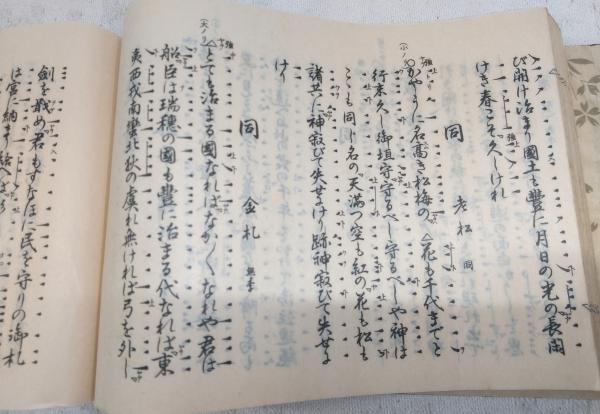 び開け治まり國土も豐に月日の光の長閑
けき春こそ久しけれ
同 老松 同
かやうに名高き松梅の 花も千代までと
行末久しく御垣守 守るべし守るべしや神は
こゝも同じ名の天満つ空も紅の花も松も
諸共に神寂びて失せにけり跡神寂びて失せに
けり
同 金札
とても治まる國なればなか〱なれや君は
船臣は瑞穂の國も豐に治まる代なれば東
夷西戎南蠻北狄の虞れ無ければ弓を外し
劍を戢め君もすなほに民を守りの御札
は宮に納まり給へば